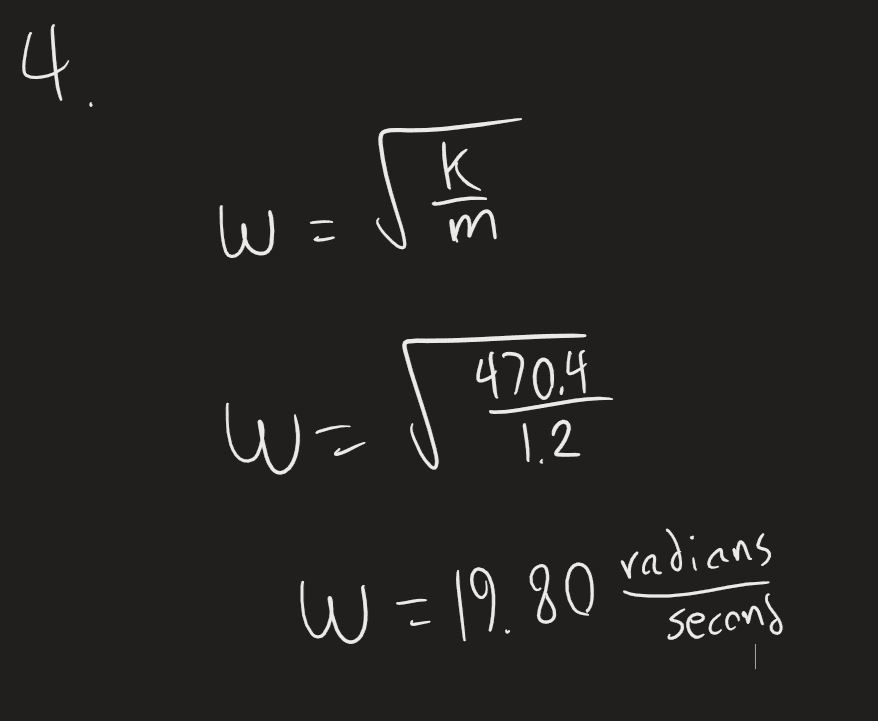 4.
w = √(k/m)
w = √(470.4/1.2)
w = 19.80 radians/second